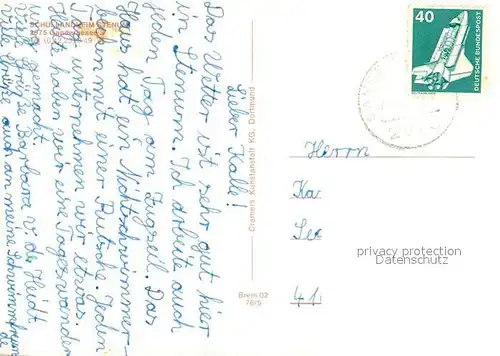 SCHULLANDHEIM STENUM
2875 Ganderkesee 2
Lieber Kalle!
Das Wetter ist sehr gut hier
in Stenum. Ich arbeite auch
jeden Tag am Zugseil. Das
hat ein Nichtschwimmer-
mit einer Rutsche. Jeden
unternehmen wir etwas.
haben wir eine Tageswander
gemacht.
Viele Grüße Barbara v. d. Heidt
Viele Grüße auch an meine Schwimmfreun
Cramers Kunstanstalt KG, Dortmund
Brem 02
76/5
40
DEUTSCHE BUNDESPOST
Herrn
Ka
41
privacy protection
Datenschutz